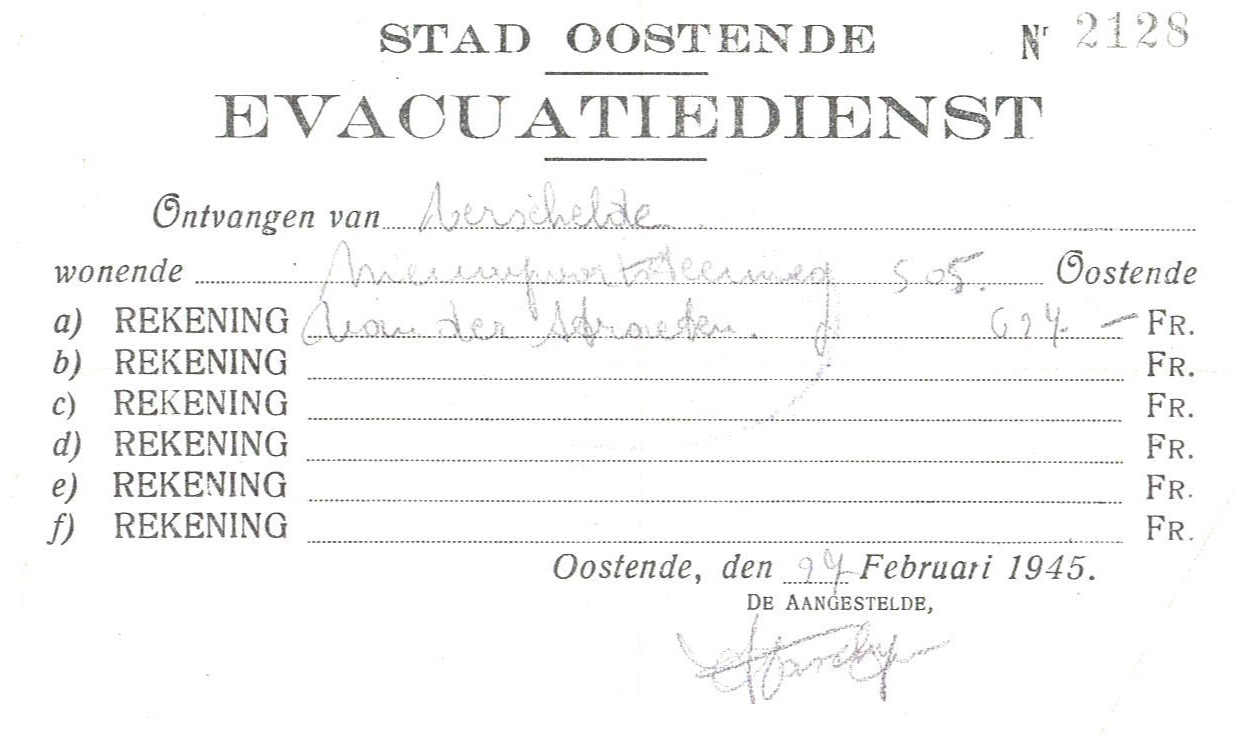 STAD OOSTENDE Nr 2128
EVACUATIEDIENST
Ontvangen van Verschelde
wonende Nieuwpoortsteenweg 505. Oostende
a) REKENING Van der Straeten. FR.
b) REKENING FR.
c) REKENING FR.
d) REKENING FR.
e) REKENING FR.
f) REKENING FR.
Oostende, den Februari 1945.
DE AANGESTELDE,